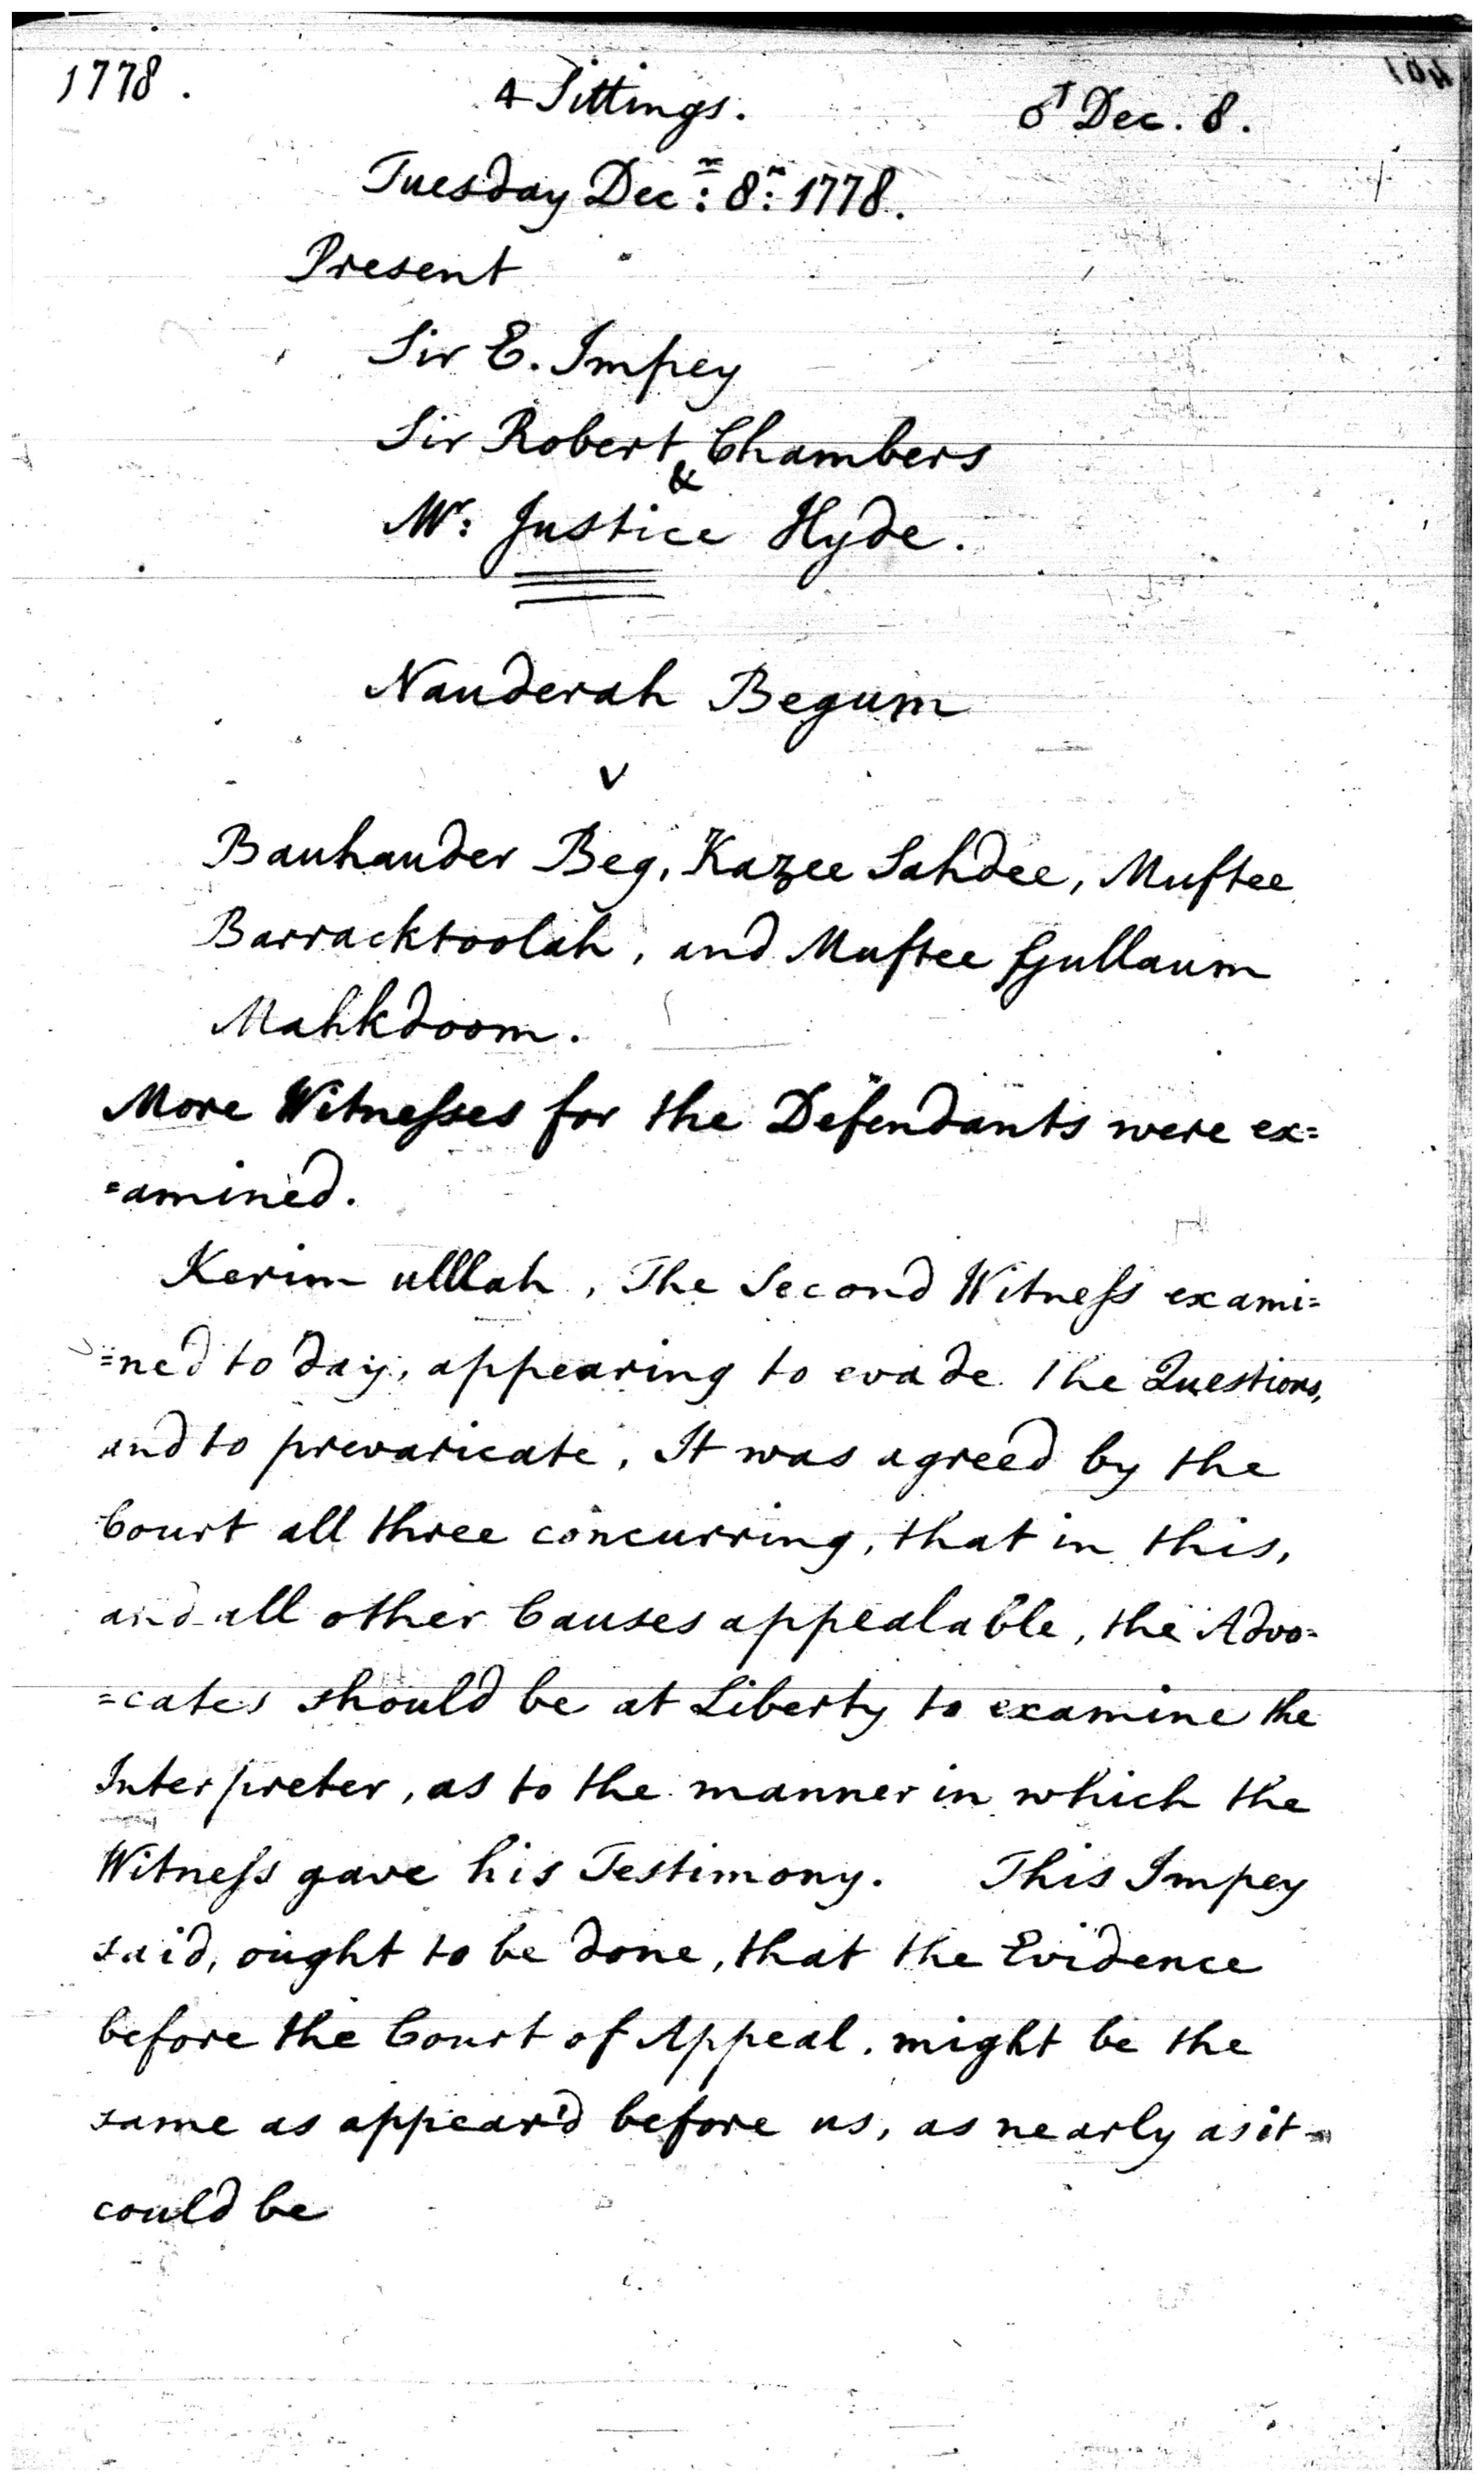 1778.
4 Sittings.
♂ Dec. 8.
Tuesday Decr: 8r: 1778.
Present
Sir E. Impey
Sir Robert Chambers
&
Mr: Justice Hyde.
Nauderah Begum
v
Bauhauder Beg, Kazee Sahdee, Muftee
Barracktoolah, and Muftee Gullaum
Mahkdoom.
More Witnesses for the Defendants were ex=
=amined.
Kerim ulllah, The Second Witness exami=
=ned to day, appearing to evade the Questions,
and to prevaricate, It was agreed by the
Court all three concurring, that in this,
and all other Causes appealable, the Advo=
=cates should be at Liberty to examine the
Interpreter, as to the manner in which the
Witness gave his Testimony. This Impey
said, ought to be done, that the Evidence
before the Court of Appeal, might be the
same as appear'd before us, as nearly as it
could be